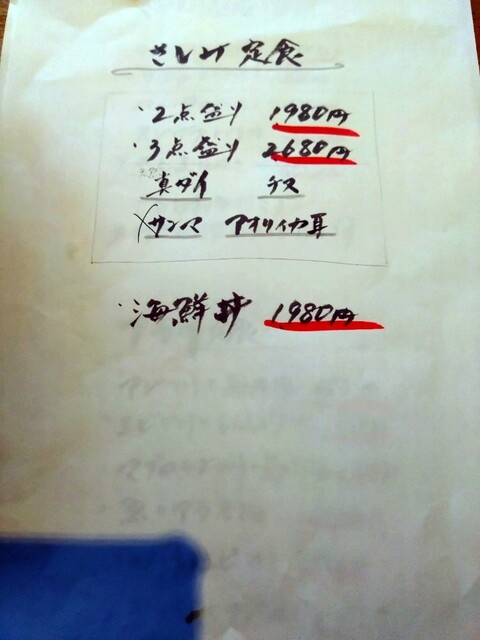 さしみ定食
・2点盛り 1980円
・3点盛り 2680円
真ダイ チヌ
×サンマ アオリイカ耳
・海鮮丼 1980円